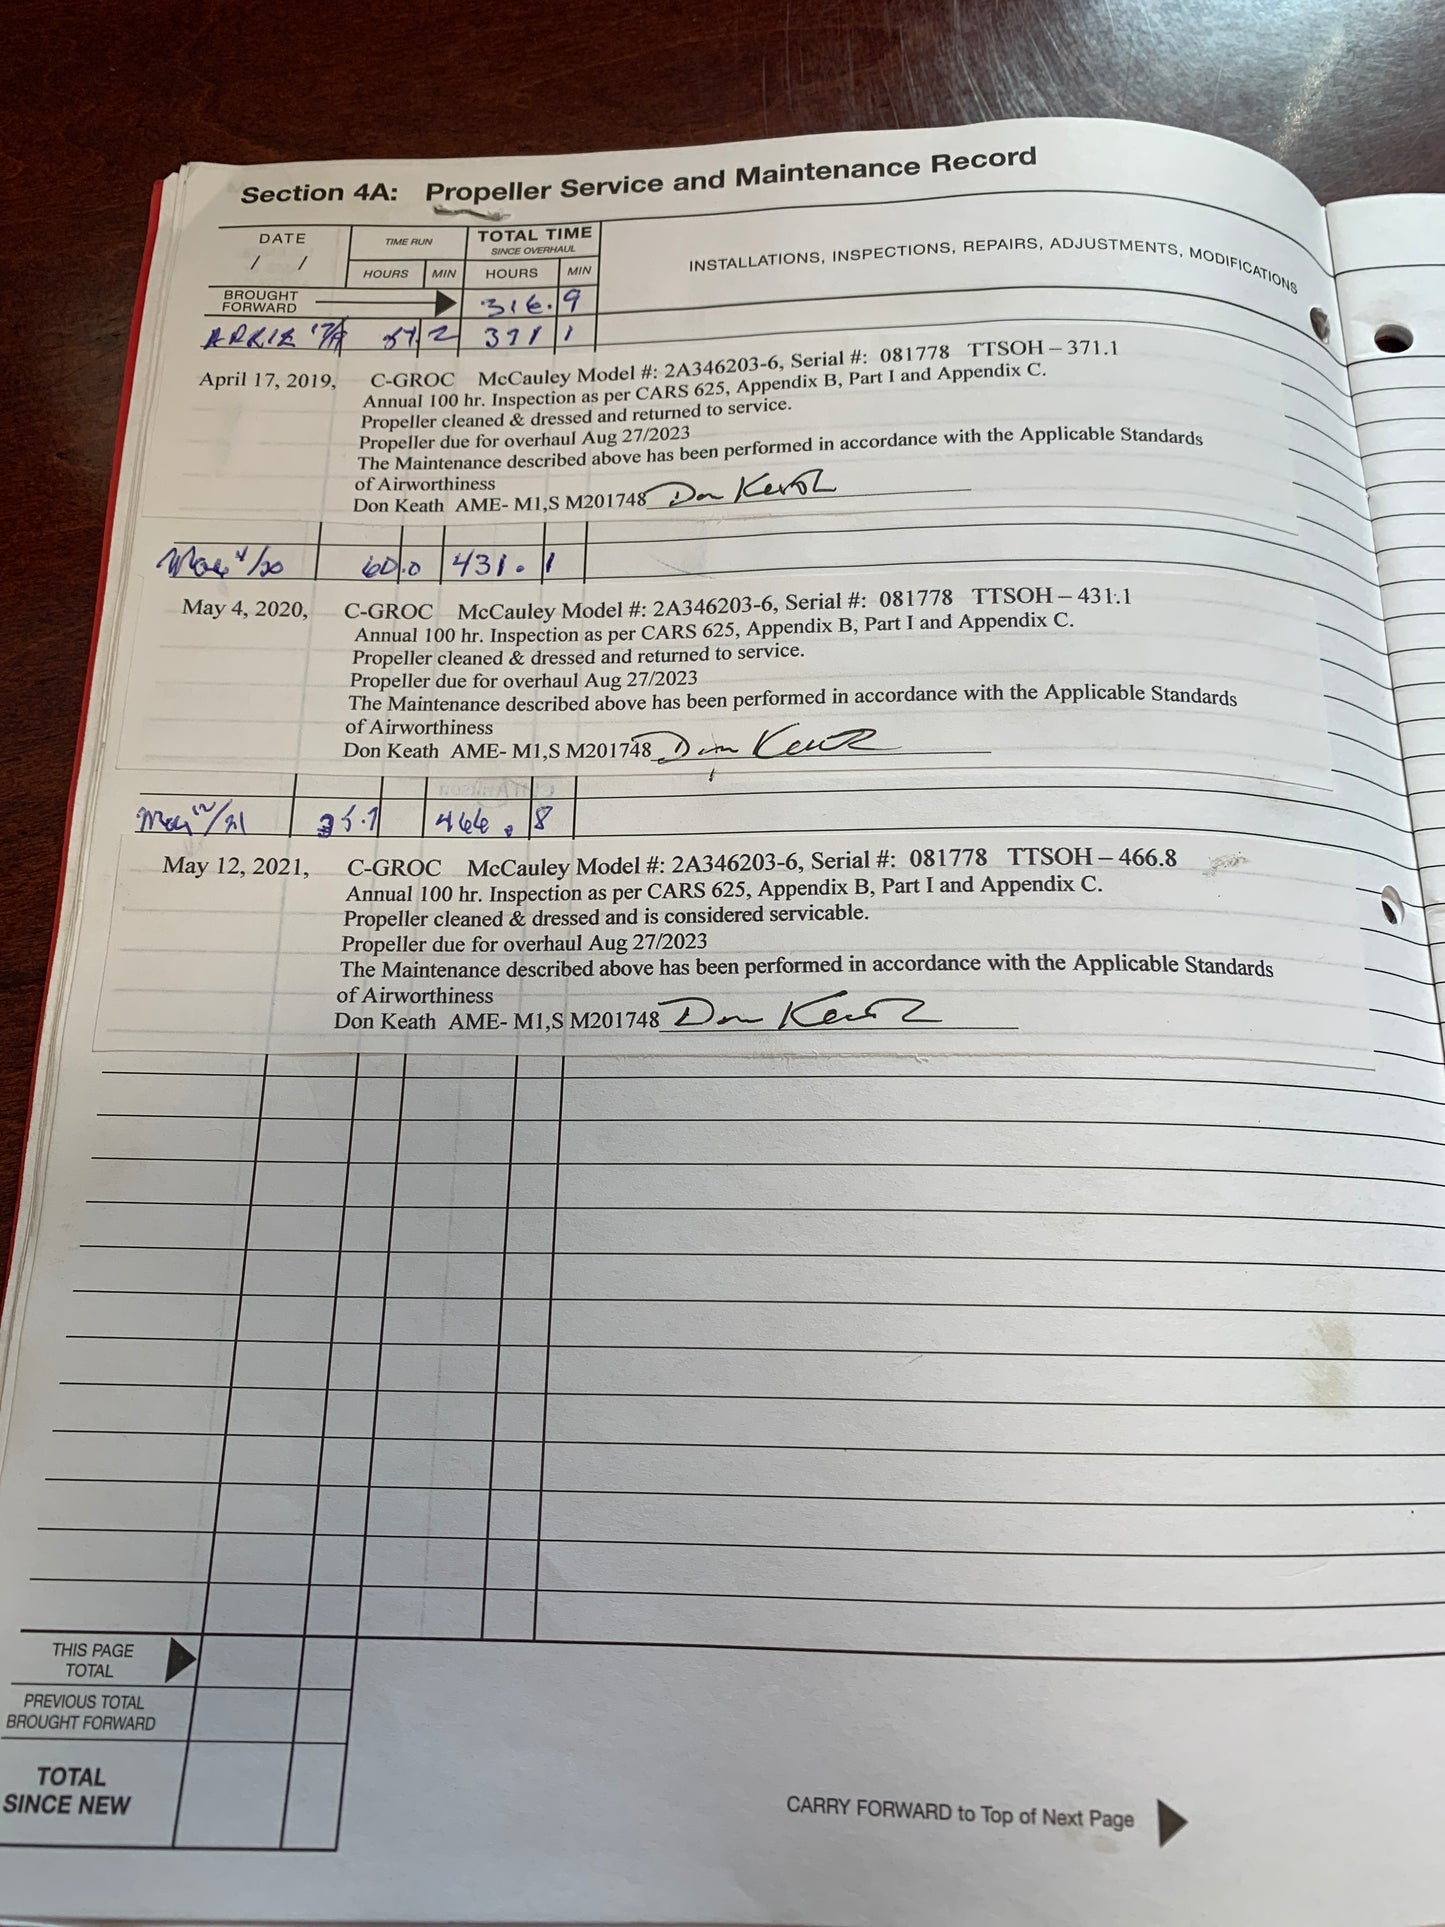 Section 4A: Propeller Service and Maintenance Record
DATE TIME RUN TOTAL TIME
SINCE OVERHAUL
/ / HOURS MIN HOURS MIN INSTALLATIONS, INSPECTIONS, REPAIRS, ADJUSTMENTS, MODIFICATIONS
BROUGHT FORWARD 316.9
54 2 371 1
April 17, 2019, C-GROC McCauley Model #: 2A346203-6, Serial #: 081778 TTSOH – 371.1
Annual 100 hr. Inspection as per CARS 625, Appendix B, Part I and Appendix C.
Propeller cleaned & dressed and returned to service.
Propeller due for overhaul Aug 27/2023
The Maintenance described above has been performed in accordance with the Applicable Standards
of Airworthiness
Don Keath AME- M1,S M201748 Don Keath
May 4/20 60.0 431.1
May 4, 2020, C-GROC McCauley Model #: 2A346203-6, Serial #: 081778 TTSOH – 431.1
Annual 100 hr. Inspection as per CARS 625, Appendix B, Part I and Appendix C.
Propeller cleaned & dressed and returned to service.
Propeller due for overhaul Aug 27/2023
The Maintenance described above has been performed in accordance with the Applicable Standards
of Airworthiness
Don Keath AME- M1,S M201748 Don Keath
May 12/21 35.7 466.8
May 12, 2021, C-GROC McCauley Model #: 2A346203-6, Serial #: 081778 TTSOH – 466.8
Annual 100 hr. Inspection as per CARS 625, Appendix B, Part I and Appendix C.
Propeller cleaned & dressed and is considered servicable.
Propeller due for overhaul Aug 27/2023
The Maintenance described above has been performed in accordance with the Applicable Standards
of Airworthiness
Don Keath AME- M1,S M201748 Don Keath
THIS PAGE
TOTAL
PREVIOUS TOTAL
BROUGHT FORWARD
TOTAL
SINCE NEW
CARRY FORWARD to Top of Next Page